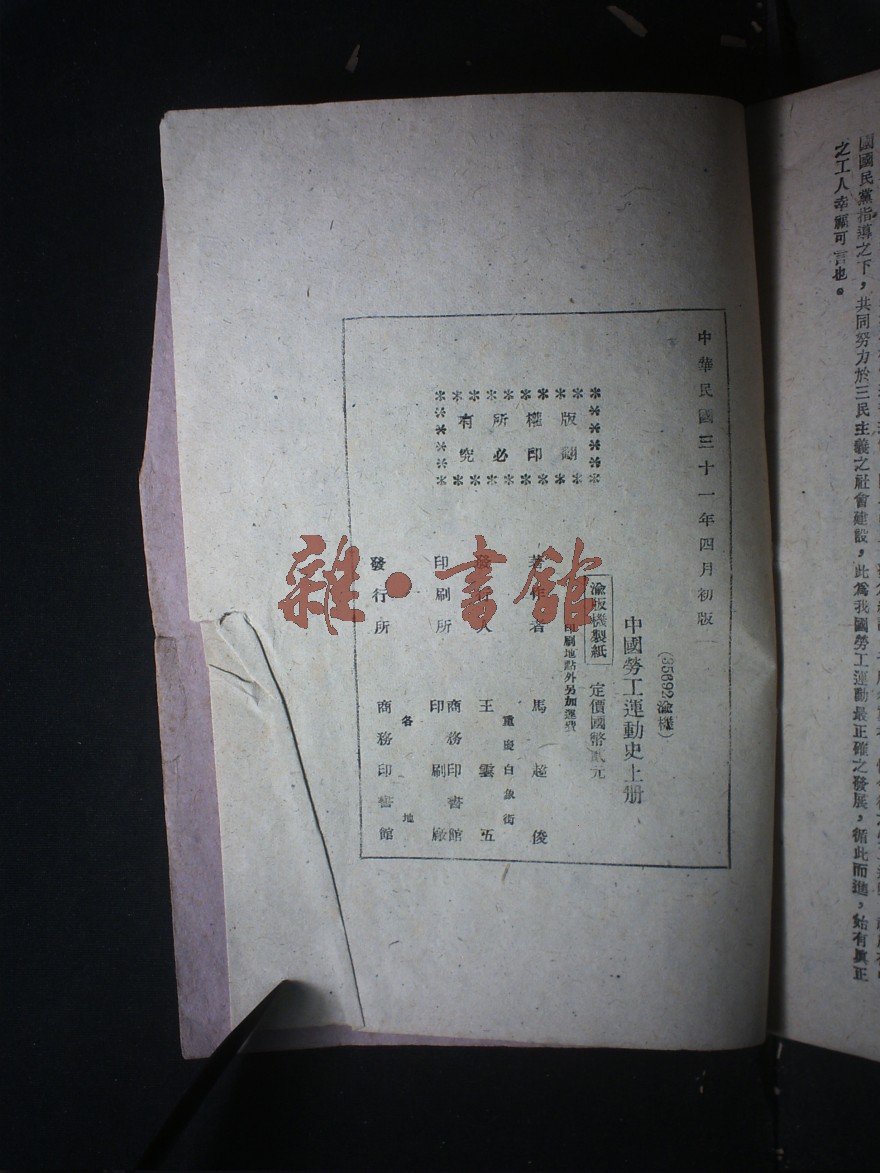 國國民黨指導之下，共同努力於三民主義之社會建設，此爲我國勞工運動最正確之發展，循此而進，始有眞正
之工人幸福可言也。
中華民國三十一年四月初版
版權所有
翻印必究
(35692渝機)
中國勞工運動史上册
渝版機製紙 定價國幣貳元
印刷地點外另加運費
著作者 馬超俊
重慶白象街
發行人 王雲五
印刷所 商務印書館
印刷廠
各地
發行所 商務印書館
雜·書館